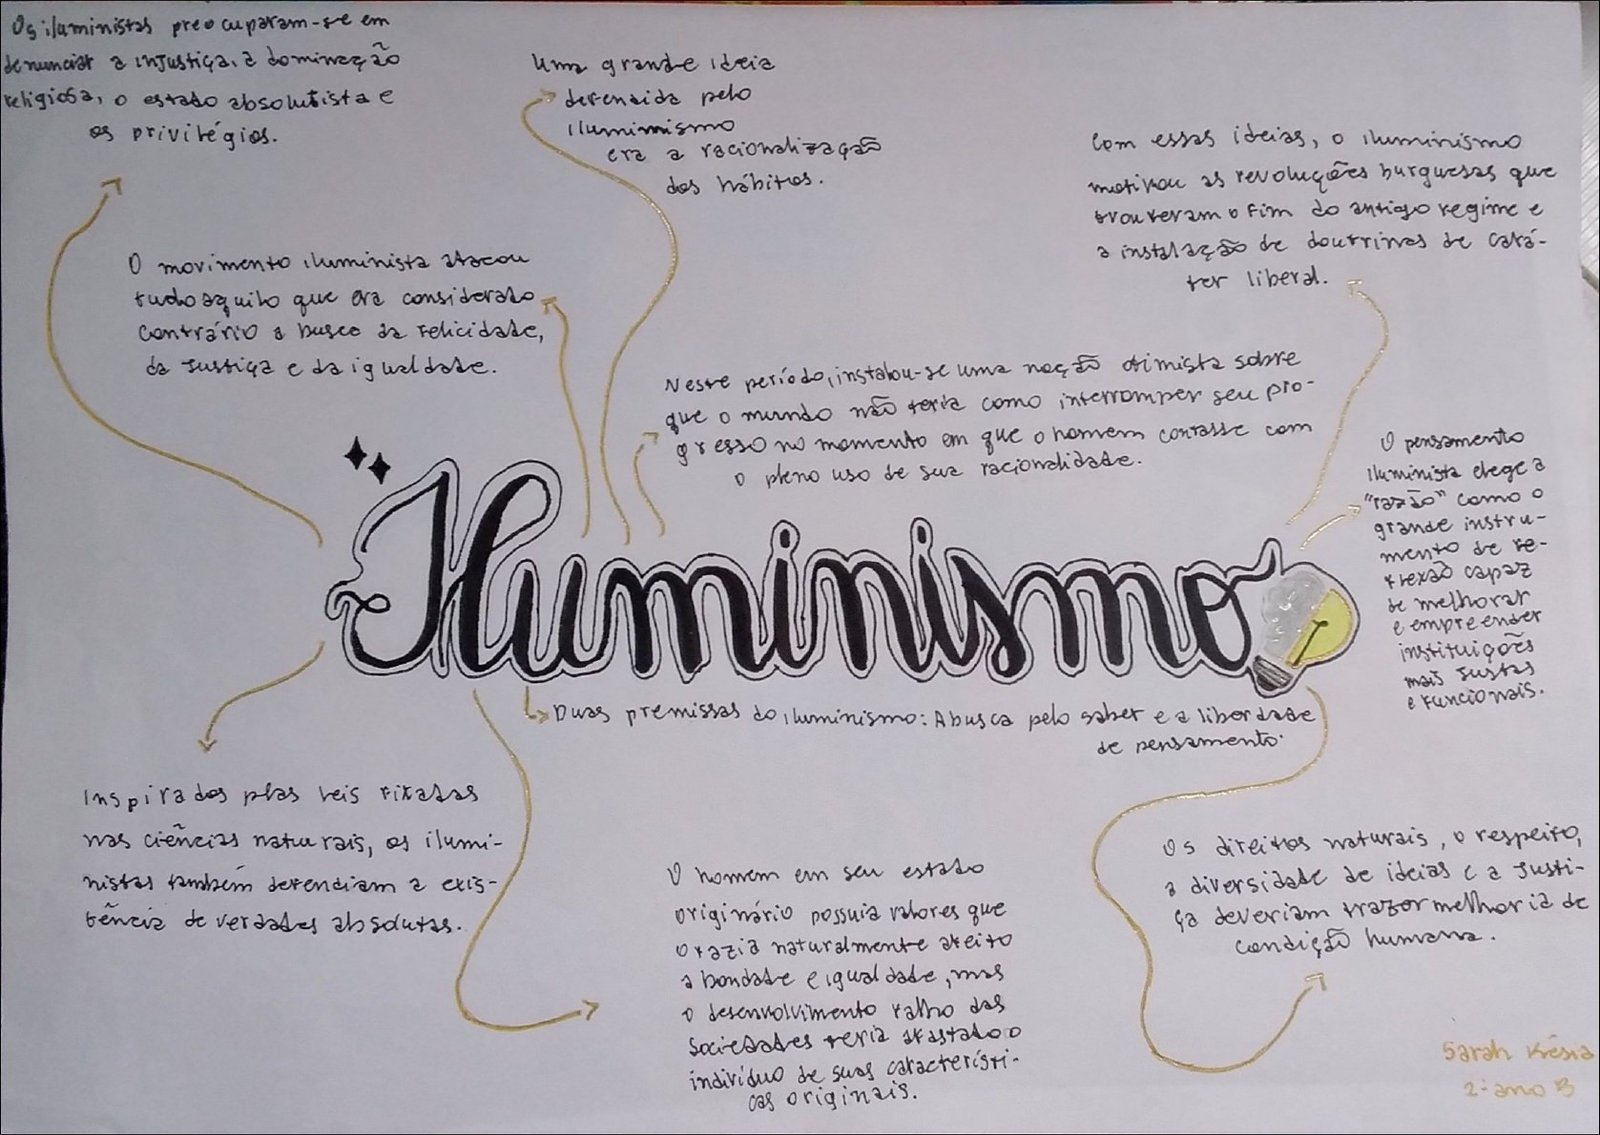 Os iluministas preocuparam-se em
denunciar a injustiça, a dominação
religiosa, o estado absolutista e
os privilégios.
Uma grande ideia
defendida pelo
iluminismo
era a racionalização
dos hábitos.
Com essas ideias, o iluminismo
motivou as revoluções burguesas que
trouxeram o fim do antigo regime e
a instalação de doutrinas de cará-
ter liberal.
O movimento iluminista atacou
tudo aquilo que era considerado
contrário a busca da felicidade,
da justiça e da igualdade.
Neste período, instalou-se uma noção otimista sobre
que o mundo não teria como interromper seu pro-
gresso no momento em que o homem contasse com
o pleno uso de sua racionalidade.
O pensamento
iluminista elege a
"razão" como o
grande instru-
mento de re-
flexão capaz
de melhorar
e empreender
instituições
mais justas
e funcionais.
Iluminismo
Duas premissas do iluminismo: A busca pelo saber e a liberdade
de pensamento.
Inspirados pelas leis fixadas
nas ciências naturais, os ilumi-
nistas também defendiam a exis-
tência de verdades absolutas.
O homem em seu estado
originário possuia valores que
o fazia naturalmente afeito
a bondade e igualdade, mas
o desenvolvimento falho das
sociedades teria afastado o
indivíduo de suas característi-
cas originais.
Os direitos naturais, o respeito,
a diversidade de ideias e a justi-
ça deveriam trazer melhoria de
condição humana.
Sarah Késia
2º ano B